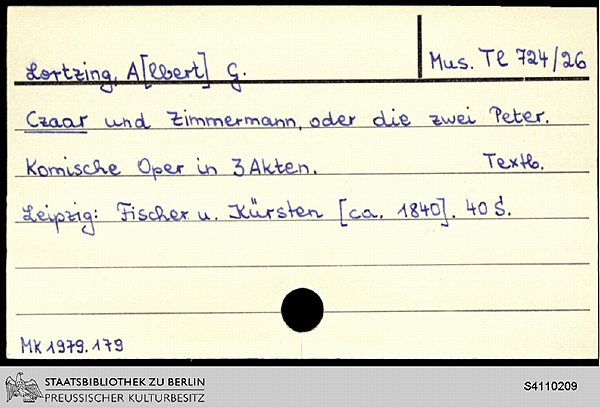 Lortzing, A[lbert] G.
Mus. Tl 724/26
Czaar und Zimmermann, oder die zwei Peter.
Komische Oper in 3 Akten. Textb.
Leipzig: Fischer u. Kürsten [ca. 1840]. 40 S.
MK 1979.179
STAATSBIBLIOTHEK ZU BERLIN
PREUSSISCHER KULTURBESITZ
S4110209